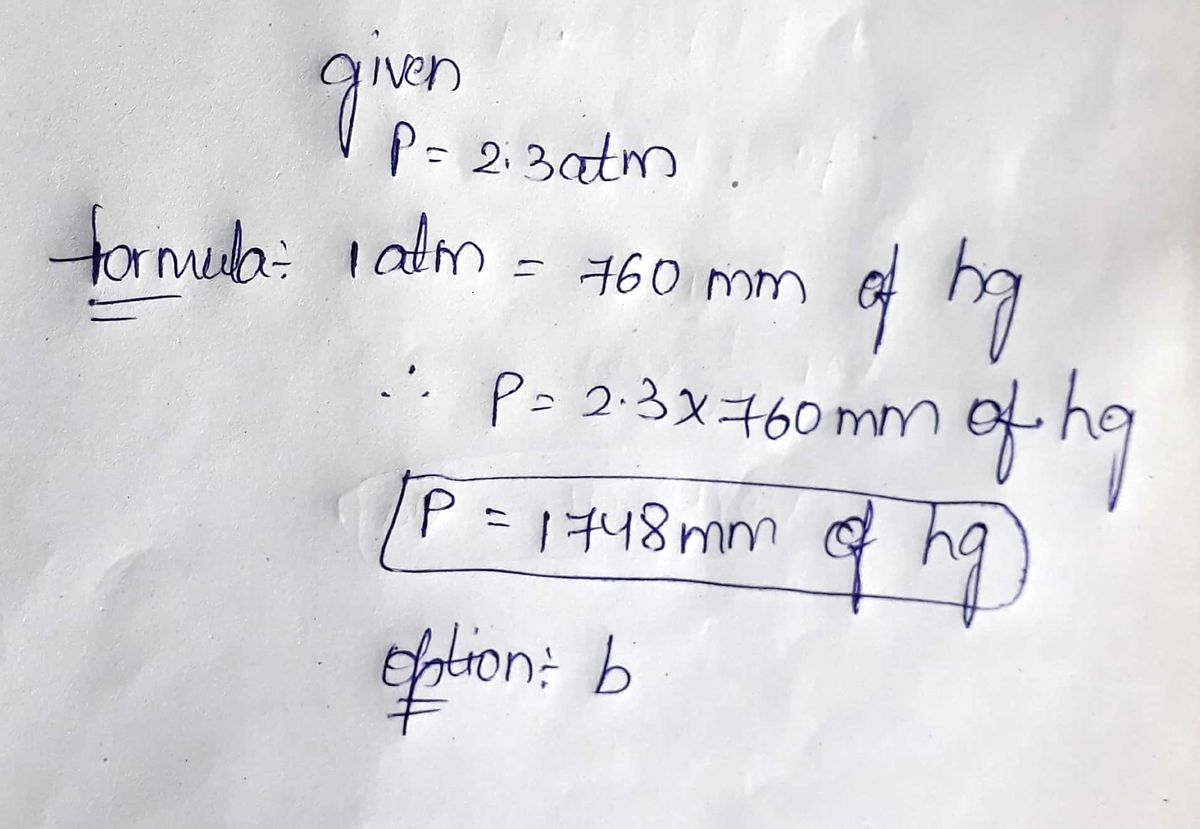 given
P = 2.3 atm
formula: 1 atm = 760 mm of hg
∴ P = 2.3 x 760 mm of hg
P = 1748 mm of hg
option: b